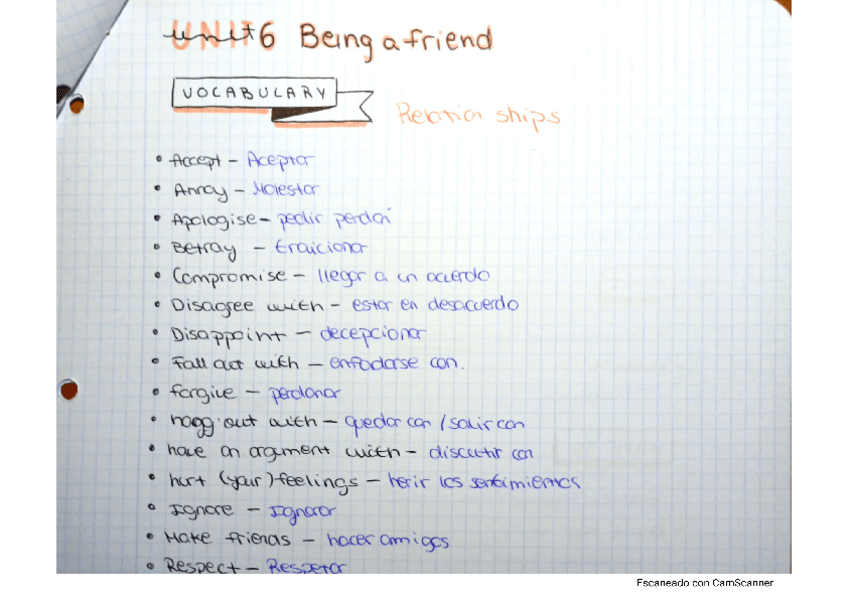 UNIT 6 Being a friend
VOCABULARY
Relationships
• Accept – Aceptar
• Annoy – Molestar
• Apologise – pedir perdón
• Betray – traicionar
• Compromise – llegar a un acuerdo
• Disagree with – estar en desacuerdo
• Disappoint – decepcionar
• Fall out with – enfadarse con.
• forgive – perdonar
• hang out with – quedar con / salir con
• have an argument with – discutir con
• hurt (your) feelings – herir los sentimientos
• Ignore – Ignorar
• Make friends – hacer amigos
• Respect – Respetar
Escaneado con CamScanner